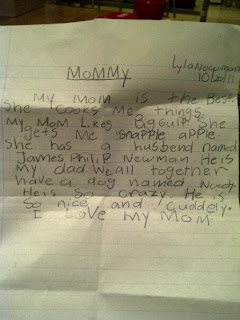 Lyla Newman
10/20/11
MOMMY
My mom is the Best.
She cooks me things
My mom Likes She
gets me snapple apple
She has a husbend named
James Philip Newman. He is
my dad We all together
have a dog named
He is So crazy He is
So nice and cuddely.
I Love My MOM